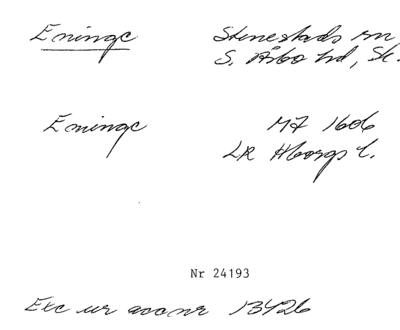 Eminge Stenestads sn
S. Åsbo hd, Sk.
Eminge M7 1606
LR Hborgs l.
Nr 24193
Exc ur accnr 13426